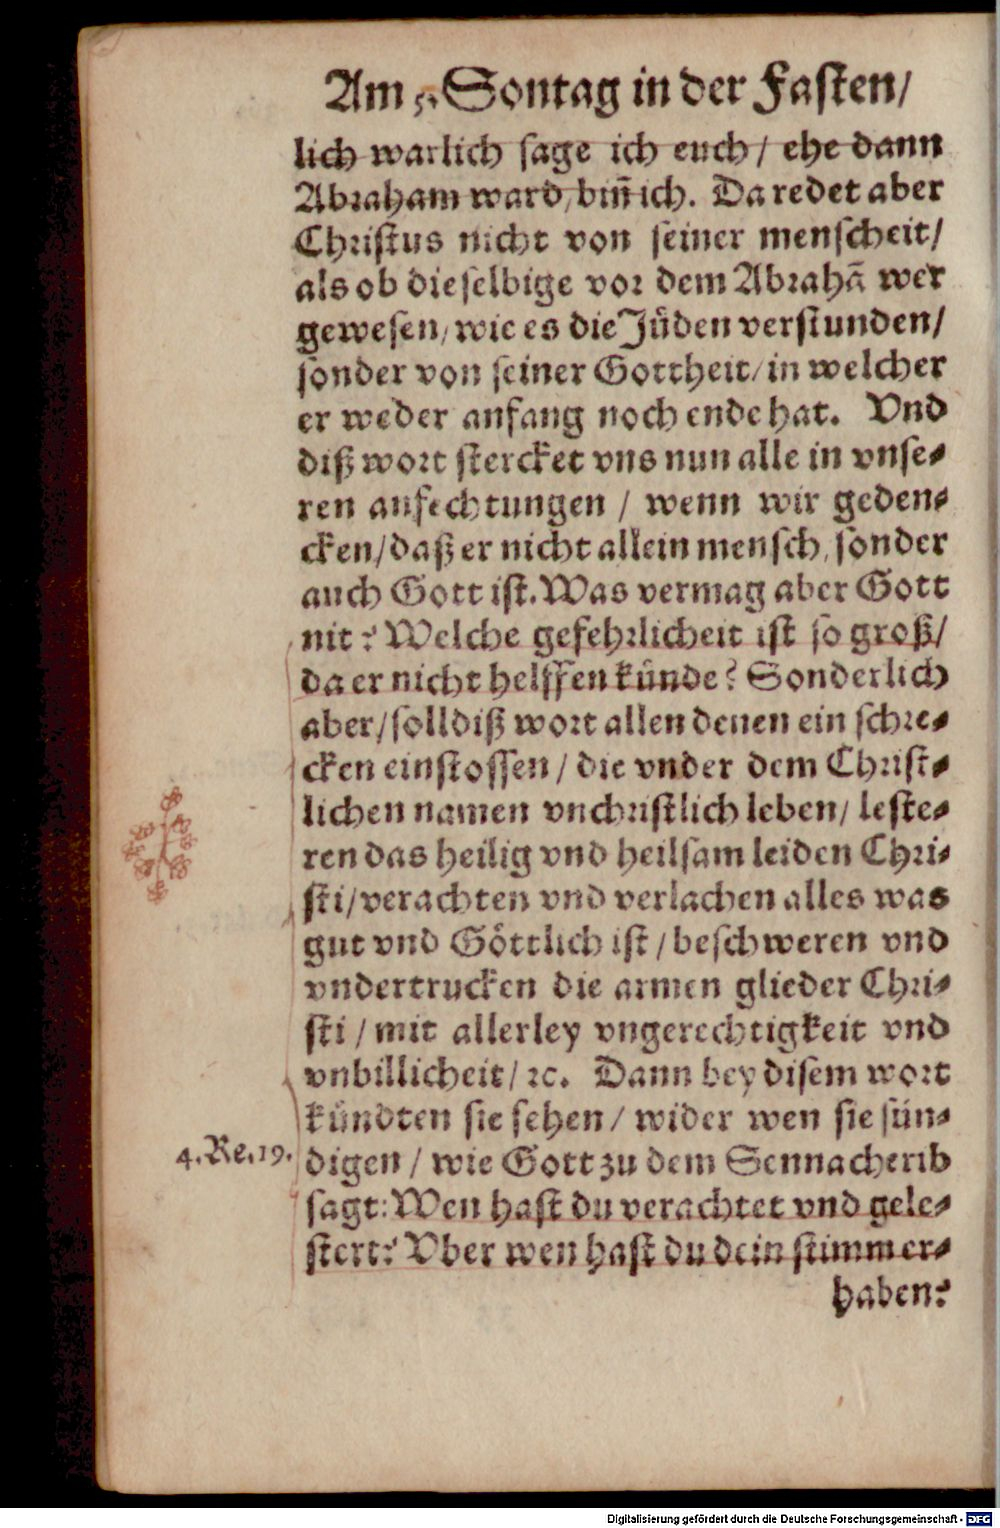 Am 5. Sontag in der Fasten/
lich warlich sage ich euch / ehe dann
Abraham ward / biñ ich. Da redet aber
Christus nicht von seiner menscheit/
als ob dieselbige vor dem Abrahã wer
gewesen / wie es die Jüden verstunden/
sonder von seiner Gottheit / in welcher
er weder anfang noch ende hat. Vnd
diß wort stercket vns nun alle in vnse-
ren anfechtungen / wenn wir geden-
cken / daß er nicht allein mensch, sonder
auch Gott ist. Was vermag aber Gott
nit? Welche gefehrlicheit ist so groß/
da er nicht helffen künde? Sonderlich
aber / soll diß wort allen denen ein schre-
cken einstossen / die vnder dem Christ-
lichen namen vnchristlich leben / leste-
ren das heilig vnd heilsam leiden Chri-
sti / verachten vnd verlachen alles was
gut vnd Göttlich ist / beschweren vnd
vndertrucken die armen glieder Chri-
sti / mit allerley vngerechtigkeit vnd
vnbillicheit / ꝛc. Dann bey disem wort
kündten sie sehen / wider wen sie sün-
4. Re. 19. digen / wie Gott zu dem Sennacherib
sagt: Wen hast du verachtet vnd gele-
stert? Vber wen hast du dein stimm er-
haben?
Digitalisierung gefördert durch die Deutsche Forschungsgemeinschaft - DFG